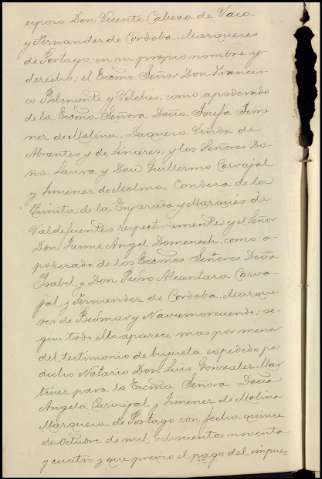 esposo Don Vicente Cabeza de Vaca
y Fernandez de Cordoba, Marqueses
de Portago, en su propio nombre y
derecho; el Excmo Señor Don Francis-
co Belmonte y Vilches, como apoderado
de la Excma Señora Doña Josefa Jime-
nez de Molina, Vaquera Viuda de
Abrantes y de Linares, y los Señores Do-
ña Laura y Don Guillermo Carvajal
y Jimenez de Molina, Condesa de la
Quinta de la Enjarada y Marqués de
Valdefuentes respectivamente; y el Señor
Don Jaime Angel Domenech, como a-
poderado de los Excmos Señores Doña
Isabel y Don Pedro Alcantara Carva-
jal y Fernandez de Cordoba, Marque-
ses de Bedmar y Navamorcuende, se-
gun todo ello aparece mas por menor
del testimonio de hijuela expedido por
dicho Notario Don Luis Gonzalez Mar-
tinez para la Excma Señora Doña
Angela Carvajal y Jimenez de Molina
Marquesa de Portago con fecha quince
de Octubre de mil ochocientos noventa
y cuatro, y que previo el pago del impues-